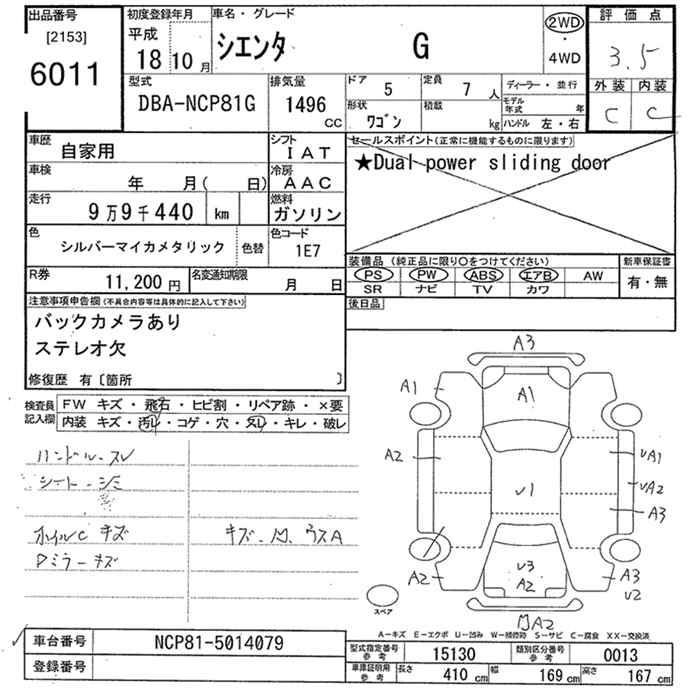 出品番号
[2153]
6011
初度登録年月
平成
18 10 月
車名・グレード
シエンタ G
2WD
・
4WD
評価点
3.5
外装 内装
C C
型式
DBA-NCP81G
排気量
1496
CC
ドア 5
定員 7 人
形状 ワゴン
積載 kg
ディーラー・並行
モデル年式 年
ハンドル 左・右
車歴 自家用
シフト IAT
車検 年 月( 日)
冷房 AAC
走行 9万9千440 km
燃料 ガソリン
色 シルバーマイカメタリック 色替
色コード 1E7
R券 11,200 円
名変通知期限 月 日
セールスポイント(正常に機能するものに限ります)
★Dual power sliding door
装備品 (純正品に限り○をつけてください)
PS PW ABS エアB AW
SR ナビ TV カワ
新車保証書
有・無
後日品
注意事項申告欄(不具合内容等は具体的に記入して下さい)
バックカメラあり
ステレオ欠
修復歴 有〔箇所 〕
検査員記入欄
FW キズ・飛石・ヒビ割・リペア跡・×要
内装 キズ・汚レ・コゲ・穴・スレ・キレ・破レ
ハンドル-スレ
シート-シミ
ホイルC キズ
キズ、凹、ウスA
Pミラーキズ
A3
A1
A1
A2
U1
UA1
UA2
A3
U3
A2
A2
A3
U2
A2
スペア
A-キズ E-エクボ U-凹み W-補修跡 S-サビ C-腐食 XX-交換済
車台番号 NCP81-5014079
登録番号
型式指定番号 参考 15130
類別区分番号 参考 0013
車庫証明用 参考
長さ 410 cm
幅 169 cm
高さ 167 cm